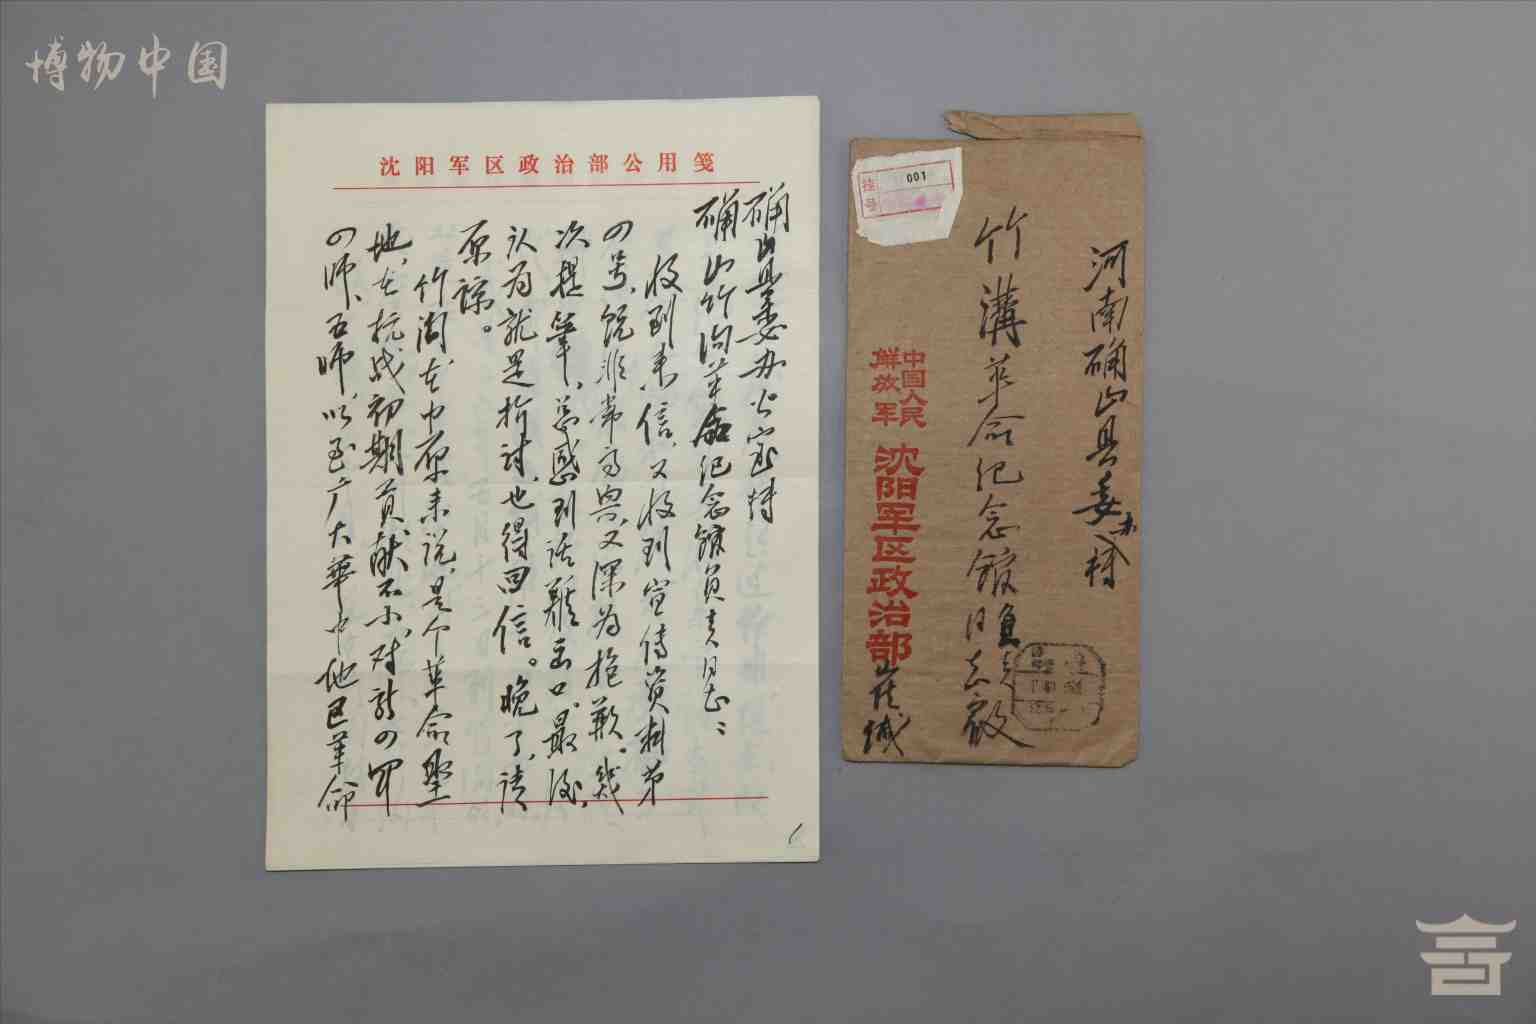 博物中国
沈阳军区政治部公用笺
确山县委办公室转
确山竹沟革命纪念馆负责同志：
收到来信，又收到宣传资料第
四号，既非常高兴，又深为抱歉。几
次提笔，总感到话难出口。最后，
认为就是检讨，也得回信。晚了，请
原谅。
竹沟在中原来说，是个革命坚
地，在抗战初期贡献不小，对新四军
四师、五师，以至广大华中地区革命
1
挂号
001
河南确山县委办转
竹溝革命纪念馆
负责
同志
启
中国人民
解放军
沈阳军区政治部
崔缄